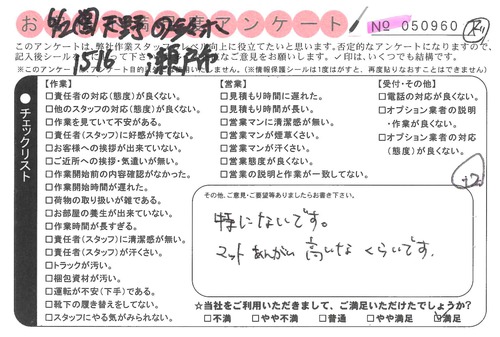 お 足度アンケート № 050960
1516
このアンケートは、弊社作業スタッフのレベル向上に役立てたいと思います。否定的なアンケートになりますので、
※このアンケート 情報保護シールは1度はがすと、再度貼りなおすことはできません)
チェックリスト
【作業】
□責任者の対応(態度)が良くない。
□他のスタッフの対応(態度)が良くない。
□作業を見ていて不安がある。
□責任者(スタッフ)に好感が持てない。
□お客様への挨拶が出来ていない。
□ご近所への挨拶・気遣いが無い。
□作業開始前の内容確認がなかった。
□作業開始時間が遅れた。
□荷物の取り扱いが雑である。
□お部屋の養生が出来ていない。
□作業時間が長すぎる。
□責任者(スタッフ)に清潔感が無い。
□責任者(スタッフ)が汗くさい。
□トラックが汚い。
□梱包資材が汚い。
□運転が不安(下手)である。
□靴下の履き替えをしてない。
□スタッフにやる気がみられない。
【営業】
□見積もり時間に遅れた。
□見積もり時間が長い。
□営業マンに清潔感が無い。
□営業マンが煙草くさい。
□営業マンが汗くさい。
□営業態度が良くない。
□営業の説明と作業が一致してない。
【受付・その他】
□電話の対応が良くない。
□オプション業者の説明
・作業が良くない。
□オプション業者の対応
(態度)が良くない。
その他、ご意見・ご要望等ありましたらお書き下さい。
特にないです。
マットあんがい高いな くらいです.
☆当社をご利用いただきまして、ご満足いただけたでしょうか?
□不満 □やや不満 □普通 □やや満足 ☑満足